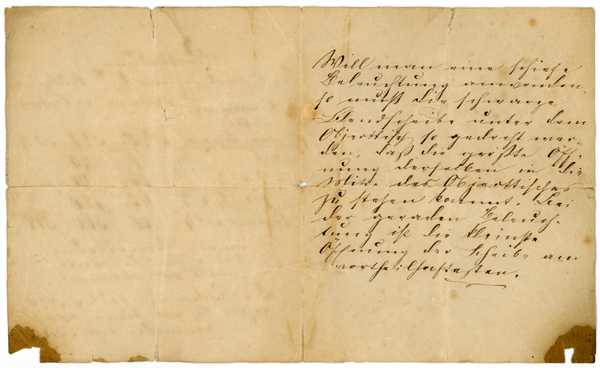 Will man eine schiefe
Beleuchtung anwenden,
so muß die schwarze
Blendscheibe unter dem
Objecttisch so gedreht wer-
den, daß die größte Öff-
nung derselben in die
Mitte des Objecttisches
zu stehen kommt. Bei
der geraden Beleuch-
tung ist die kleinste
Öffnung der Scheibe am
vortheilhaftesten.